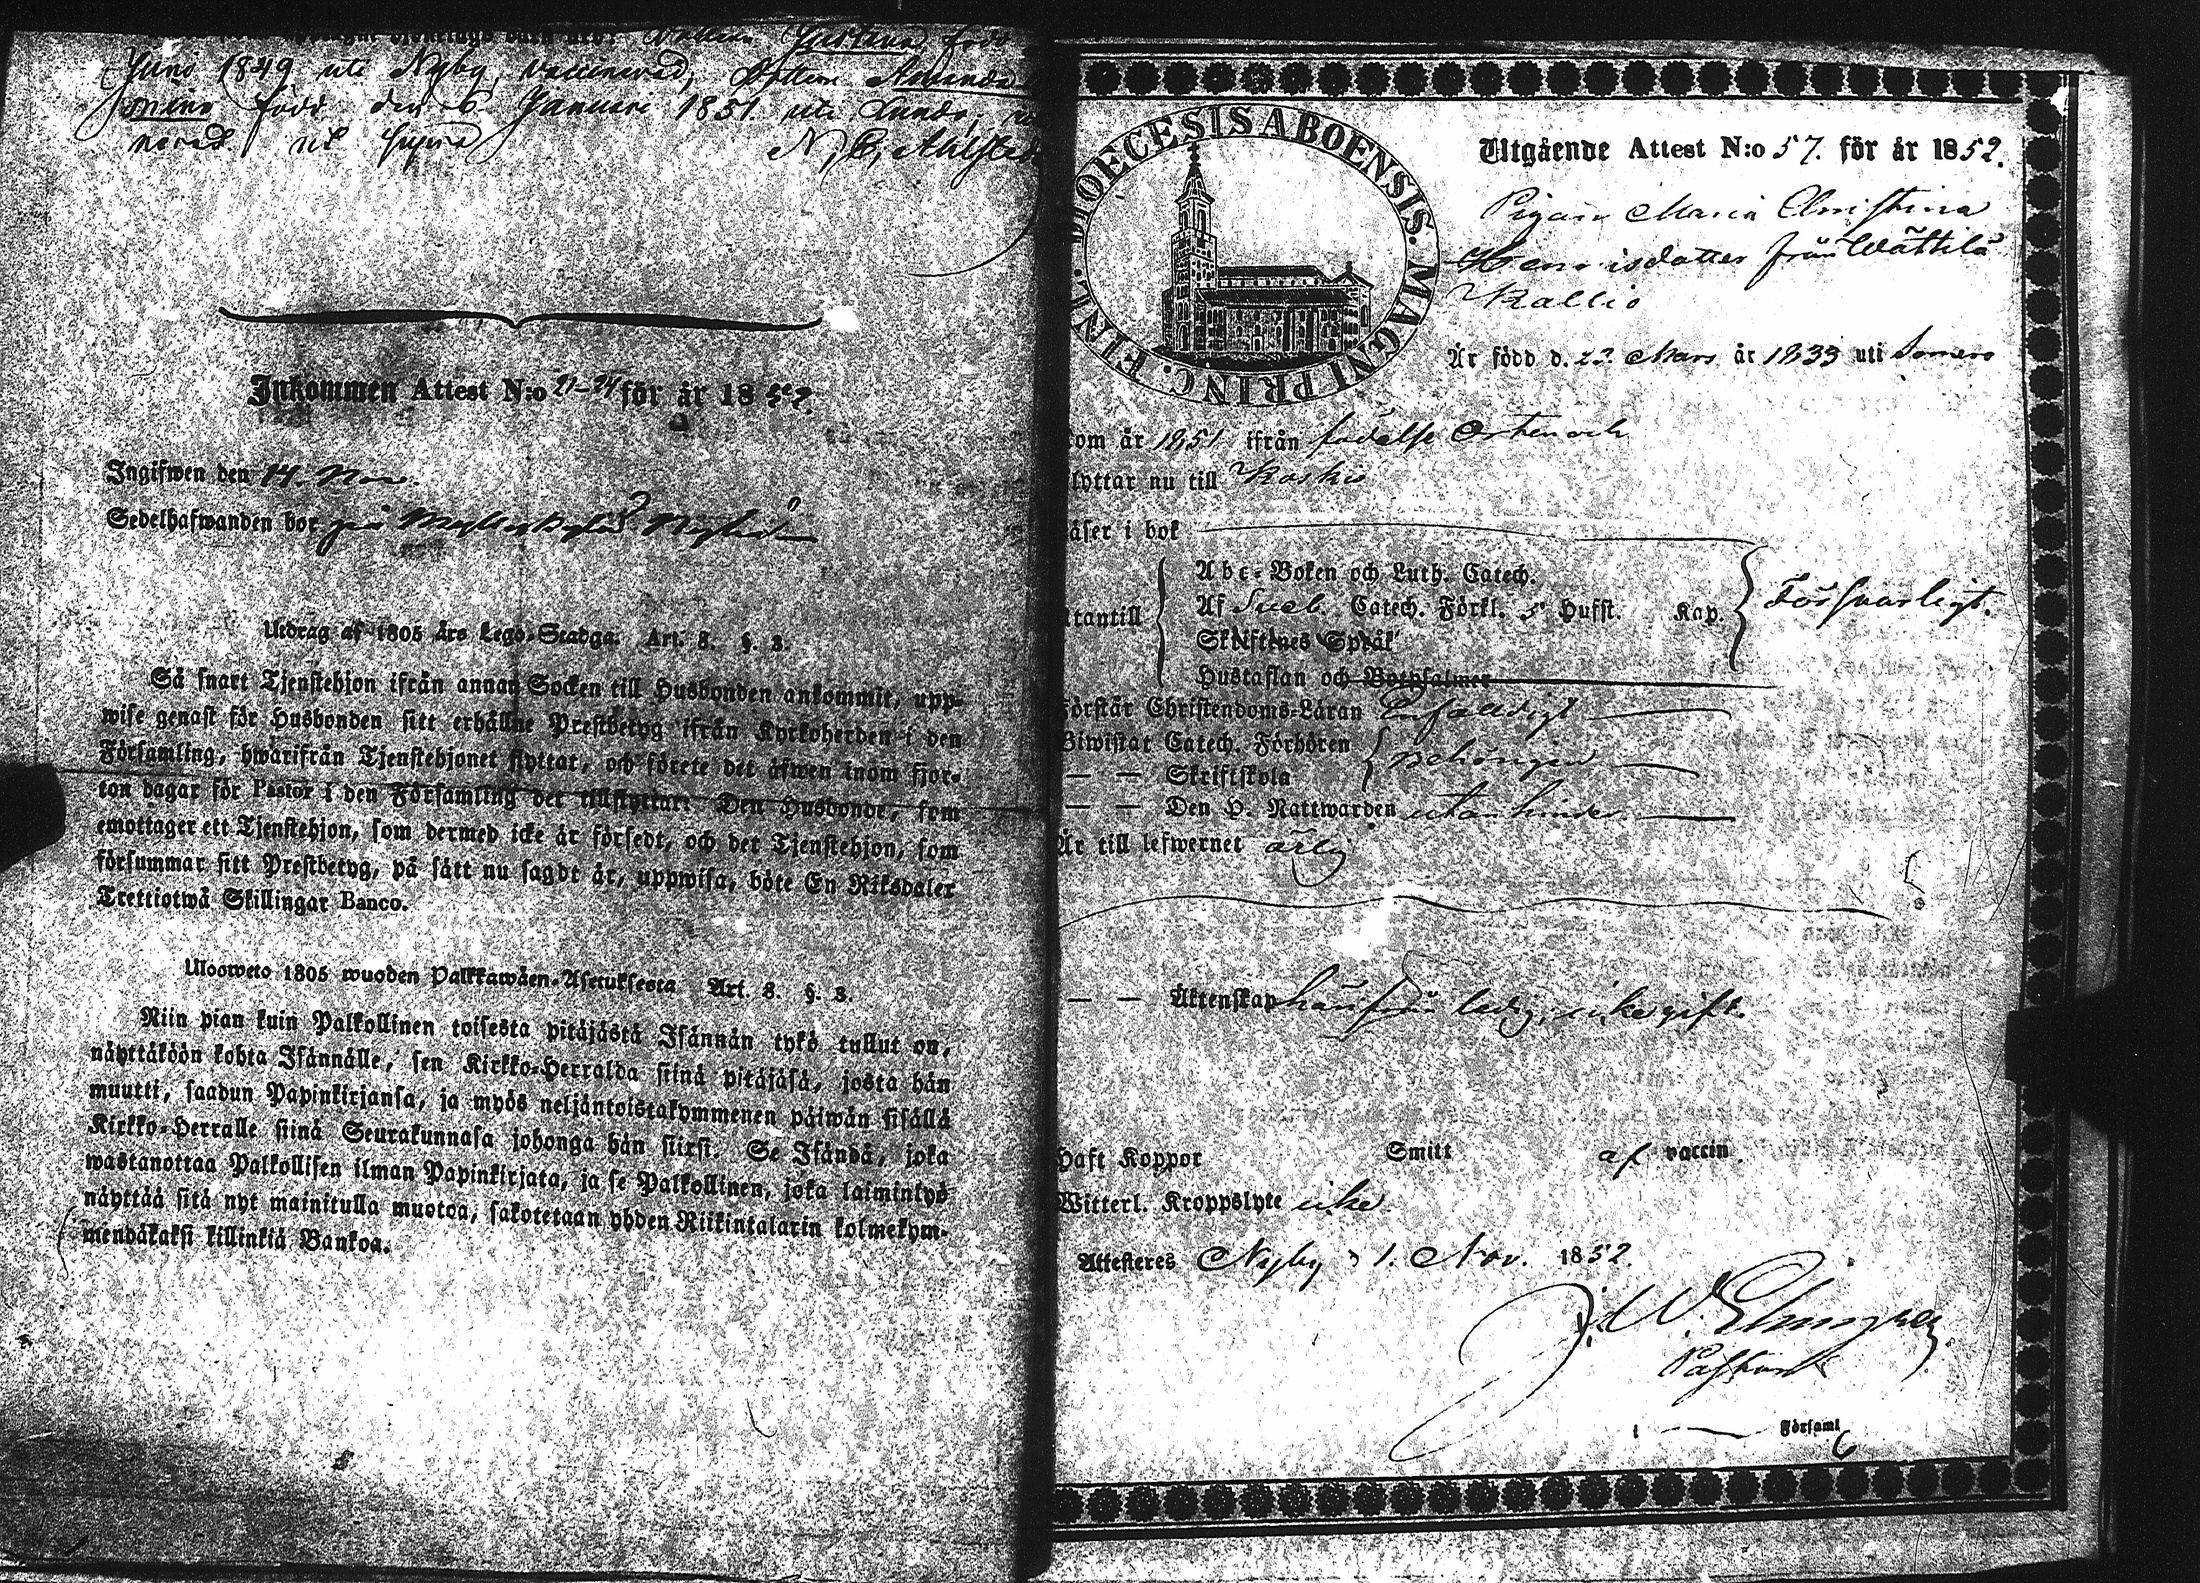 Juni 1849 uti Nyby, vaccinerad, Dottern Amanda
född den 6 Januari 1851 uti Lundo,
nerad ut supra
N, C, Ahlsted
Inkommen Attest N:o 21-24 för år 1852.
Ingifwen den 14. Nov.
Sedelhafwanden bor på
Utdrag af 1805 års Lego-Stadga. Art. 8. §. 3.
Så snart Tjenstehjon ifrån annan Socken till Husbonden ankommit, upp-
wise genast för Husbonden sitt erhållne Prestbetyg ifrån Kyrkoherden i den
Församling, hwarifrån Tjenstehjonet flyttat, och förete det äfwen inom fjor-
ton dagar för Pastor i den Församling det tillflyttar: Den Husbonde, som
emottager ett Tjenstehjon, som dermed icke är försedt, och det Tjenstehjon, som
försummar sitt Prestbetyg, på sätt nu sagdt är, uppwisa, böte En Riksdaler
Trettiotwå Skillingar Banco.
Uloosweto 1805 wuoden Palkkawäen-Asetuksesta Art. 8. §. 3.
Niin pian kuin Palkollinen toisesta pitäjästä Isännän tykö tullut on,
näyttäköön kohta Isännälle, sen Kirkko-Herralda siinä pitäjäsä, josta hän
muutti, saadun Papinkirjansa, ja myös neljäntoistakymmenen päiwän sisällä
Kirkko-Herralle siinä Seurakunnasa johonga hän siirsi. Se Isändä, joka
wastanottaa Palkollisen ilman Papinkirjata, ja se Palkollinen, joka laiminlyö
näyttää sitä nyt mainitulla muotoa, sakotetaan yhden Riikintalarin kolmekym-
mendäkaksi killinkiä Bankoa.
DIOECESIS ABOENSIS. MAGNI PRINC. FINL.
Utgående Attest N:o 57. för år 1852.
Pigan Maria Christina
Henrisdotter från Wättilä
Kallio
Är född d. 23 Mars år 1833 uti Somero
om år 1851 ifrån födelse Orten och
lyttar nu till Koskis
äser i bok
tantill
Abc-Boken och Luth. Catech.
Af Sveb. Catech. Förkl. 5 Hufst. Kap.
Skriftenes Språk
Hustaflan och Botpsalmer
Försvarligt.
Förstår Christendoms-Läran Enfaldigt
Biwistat Catech. Förhören
— — Skriftskola
behörigen
— — Den H. Nattwarden utan hinder
Är till lefwernet ärlig
— — Äktenskap härifrån ledig, icke gift.
Haft Koppor Smitt af vaccin.
Witterl. Kroppslyte icke
Attesteres Nyby d 1. Nov. 1852.
J. W. Ekingren
Pastor
i Församl